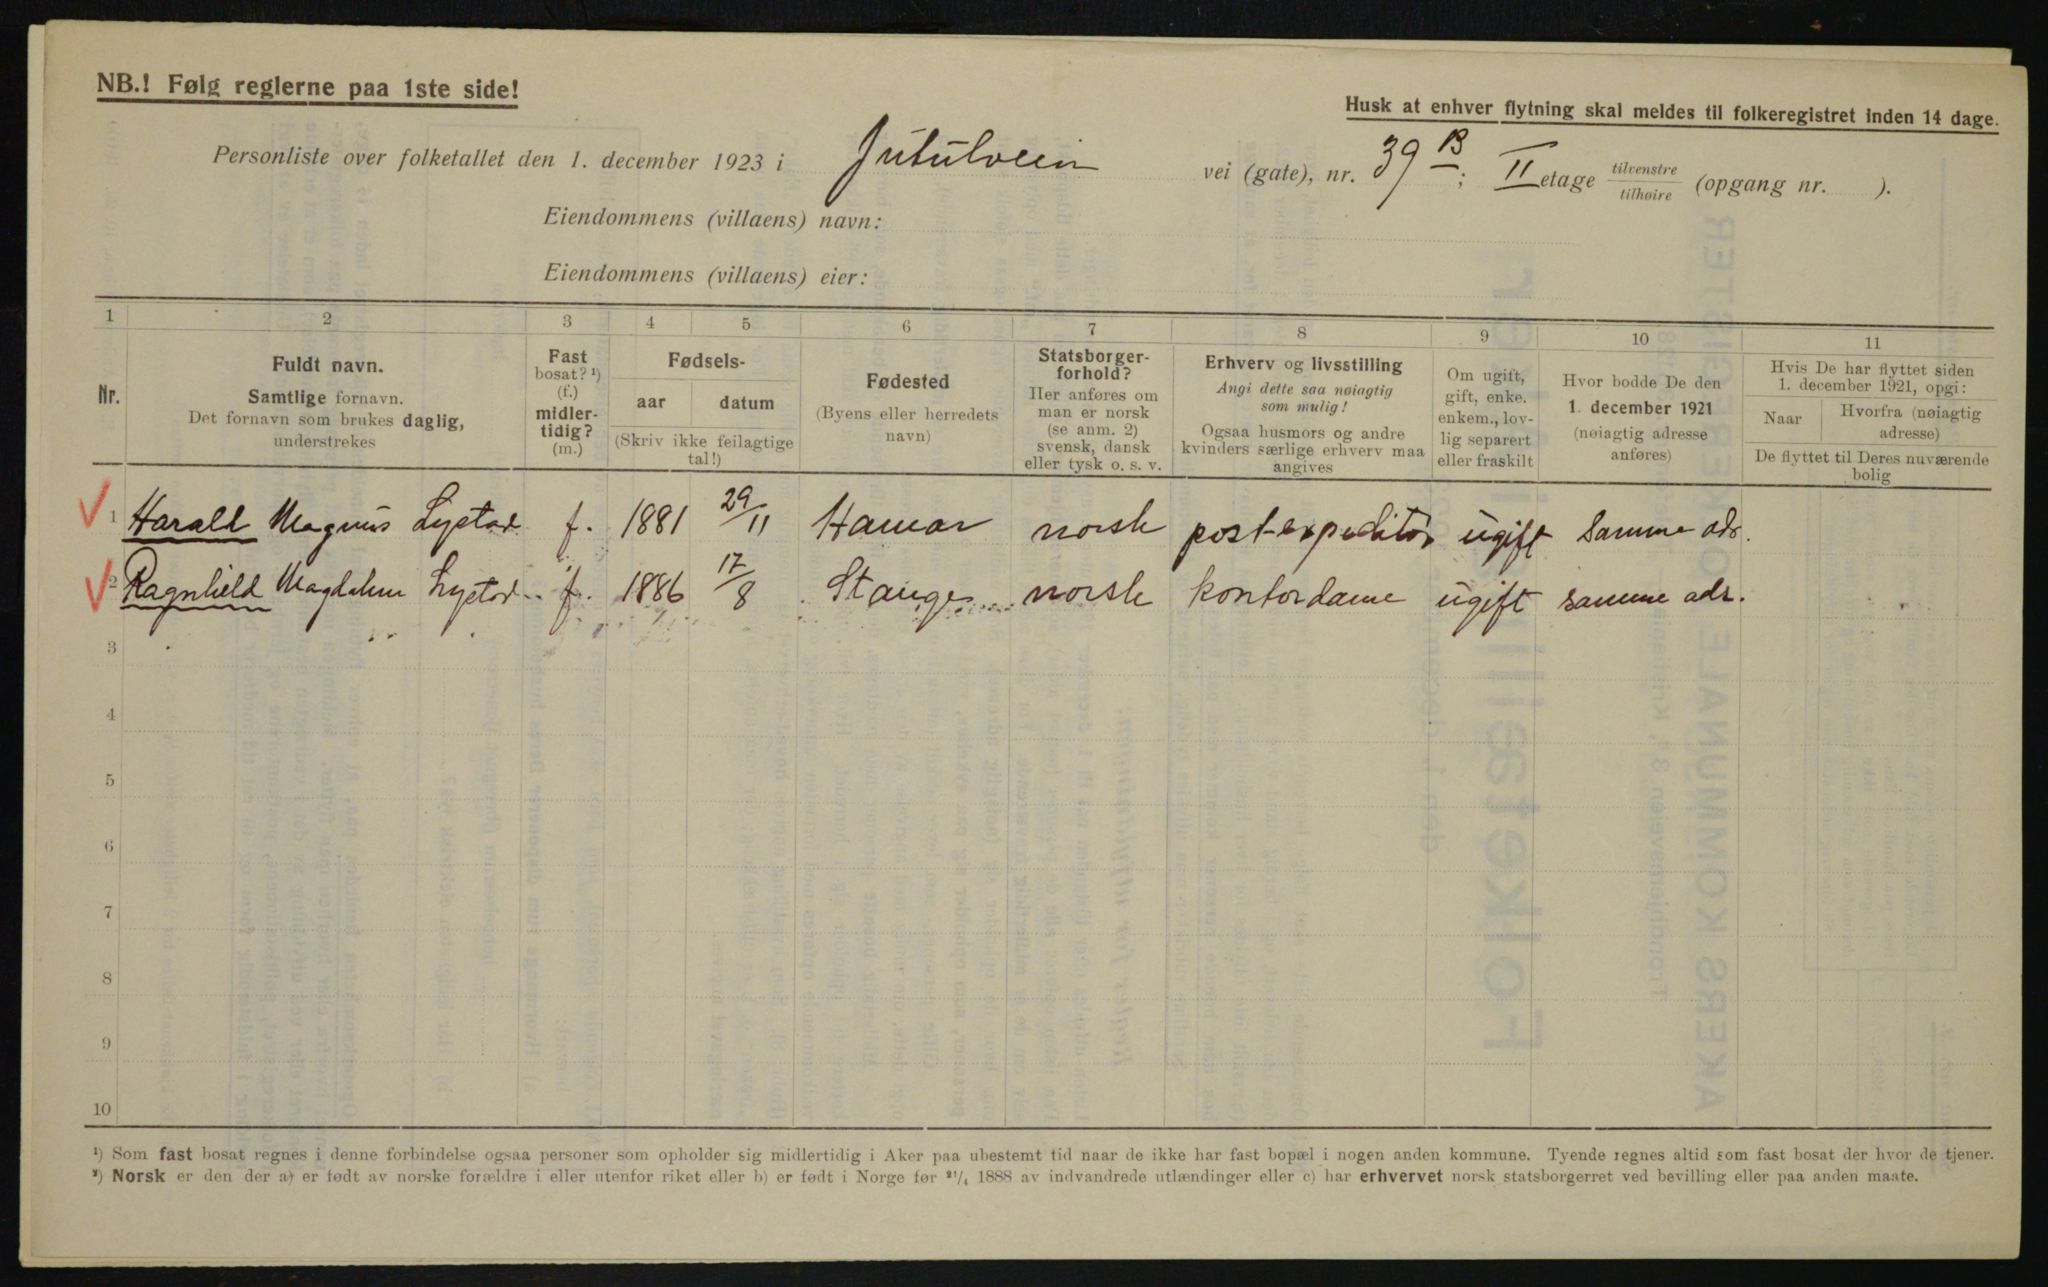 NB.! Følg reglerne paa 1ste side!
Husk at enhver flytning skal meldes til folkeregistret inden 14 dage.
Personliste over folketallet den 1. december 1923 i Jutulveien vei (gate), nr. 39 B; II etage tilvenstre tilhøire (opgang nr. ).
Eiendommens (villaens) navn:
Eiendommens (villaens) eier:
1 2 3 4 5 6 7 8 9 10 11
Nr.
Fuldt navn.
Samtlige fornavn.
Det fornavn som brukes daglig,
understrekes
Fast
bosat? ¹)
(f.)
midler-
tidig?
(m.)
Fødsels-
aar datum
(Skriv ikke feilagtige
tal!)
Fødested
(Byens eller herredets
navn)
Statsborger-
forhold?
Her anføres om
man er norsk
(se anm. 2)
svensk, dansk
eller tysk o. s. v.
Erhverv og livsstilling
Angi dette saa nøiagtig
som mulig!
Ogsaa husmors og andre
kvinders særlige erhverv maa
angives
Om ugift,
gift, enke.
enkem., lov-
lig separert
eller fraskilt
Hvor bodde De den
1. december 1921
(nøiagtig adresse
anføres)
Hvis De har flyttet siden
1. december 1921, opgi:
Naar
Hvorfra (nøiagtig
adresse)
De flyttet til Deres nuværende
bolig
1 Harald Magnus Lystad f. 1881 29/11 Hamar norsk postexpeditør ugift Samme adr.
2 Ragnhild Magdalene Lystad f. 1886 17/8 Stange norsk kontordame ugift samme adr.
3
4
5
6
7
8
9
10
¹) Som fast bosat regnes i denne forbindelse ogsaa personer som opholder sig midlertidig i Aker paa ubestemt tid naar de ikke har fast bopæl i nogen anden kommune. Tyende regnes altid som fast bosat der hvor de tjener.
²) Norsk er den der a) er født av norske forældre i eller utenfor riket eller b) er født i Norge før ²¹/₄ 1888 av indvandrede utlændinger eller c) har erhvervet norsk statsborgerret ved bevilling eller paa anden maate.